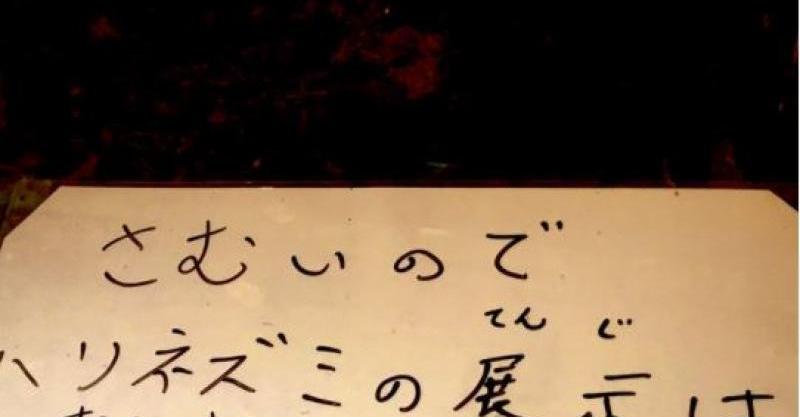 さむいので
てんじ
ハリネズミの展示は